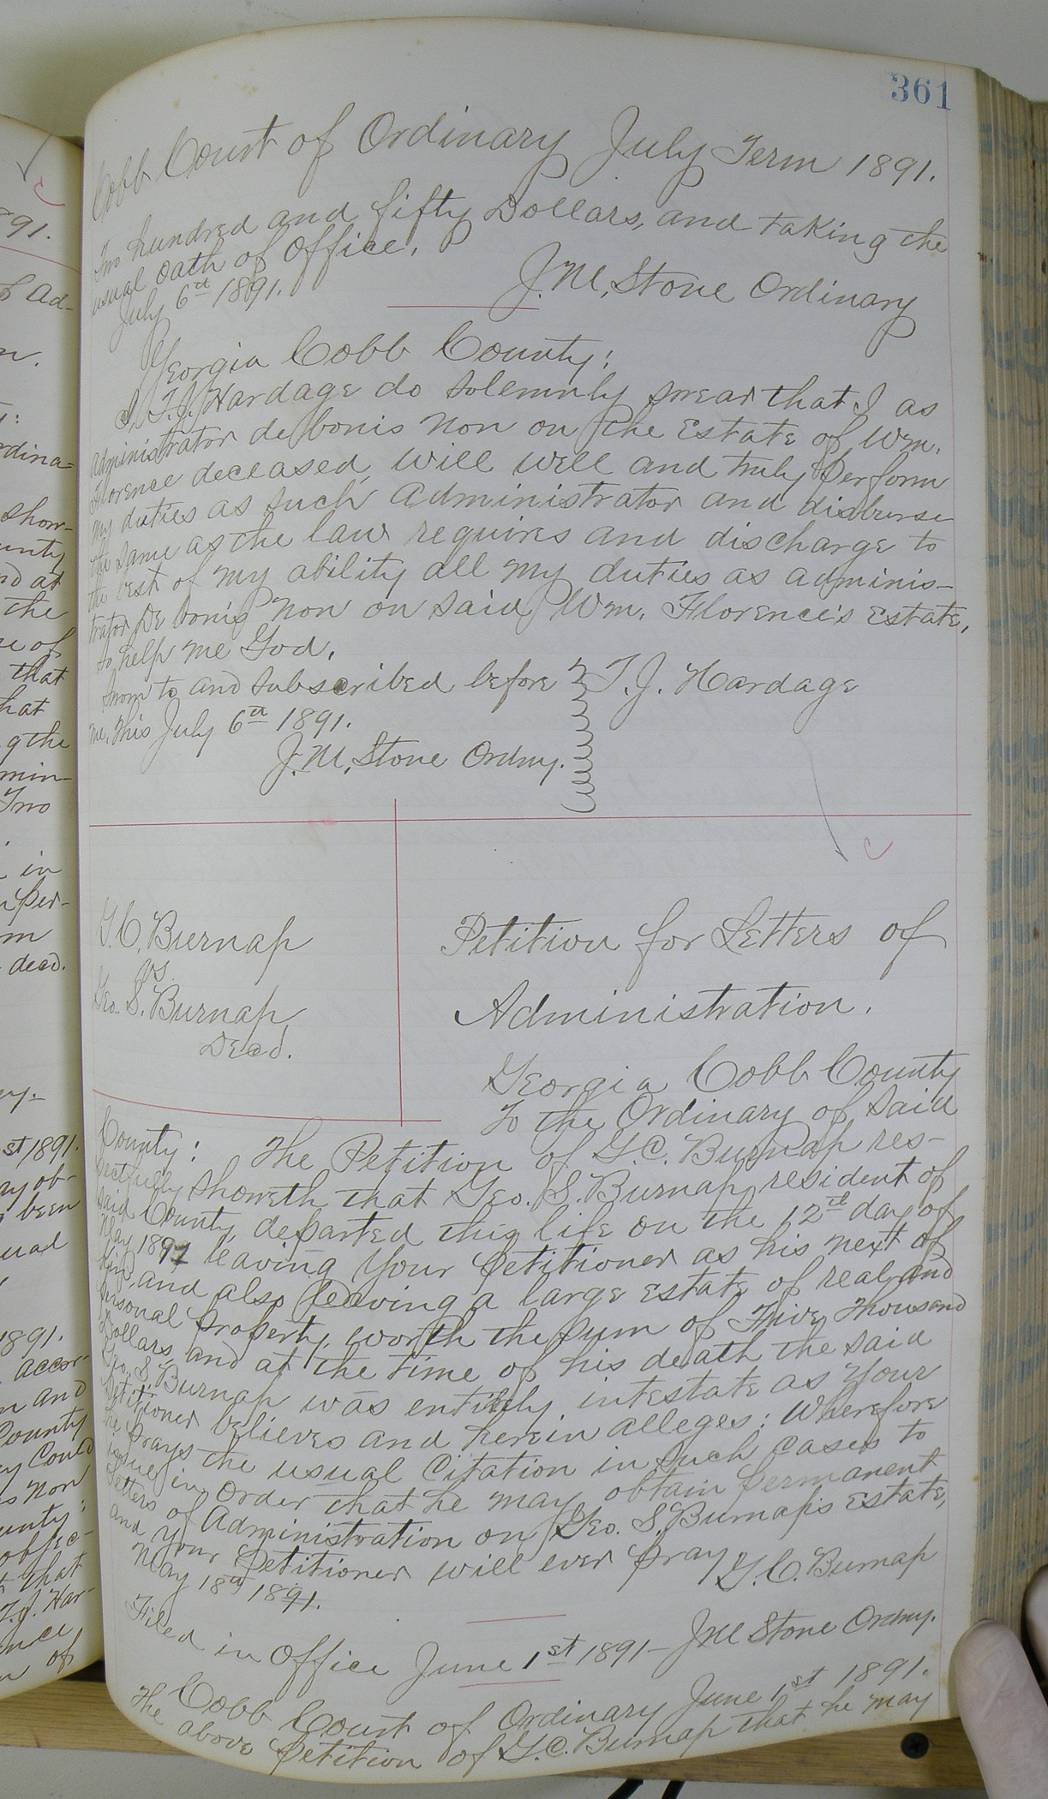 361
Cobb Court of Ordinary July Term 1891.
Two hundred and fifty Dollars, and taking the
usual oath of office.
July 6th 1891.
J. M. Stone Ordinary
Georgia Cobb County:
I, T. J. Hardage do solemnly swear that I as
Administrator de bonis non on the Estate of Wm.
Florence deceased, will well and truly perform
my duties as such Administrator and disburse
the same as the law requires and discharge to
the best of my ability all my duties as adminis-
trator De bonis non on said Wm. Florence's Estate,
so help me God.
Sworn to and subscribed before
me, this July 6th 1891.
J. M. Stone Ordny.
T. J. Hardage
G. C. Burnap
vs.
Geo. S. Burnap
Dead.
Petition for Letters of
Administration.
Georgia Cobb County
To the Ordinary of Said
County: The Petition of G. C. Burnap res-
pectfully showeth that Geo. S. Burnap, resident of
said County, departed this life on the 12th day of
May 1891 leaving Your Petitioner as his next of
kin, and also leaving a large Estate of real and
personal property, worth the sum of Five Thousand
Dollars, and at the time of his death the said
Geo. S. Burnap was entirely intestate as Your
Petitioner believes and herein alleges: Wherefore
he prays the usual Citation in such cases to
issue in order that he may obtain permanent
Letters of Administration on Geo. S. Burnap's Estate,
and your Petitioner will ever pray,
May 18th 1891.
G. C. Burnap
Filed in Office June 1st 1891- J M Stone Ordny.
Cobb Court of Ordinary June 1st 1891.
The above Petition of G. C. Burnap that he may